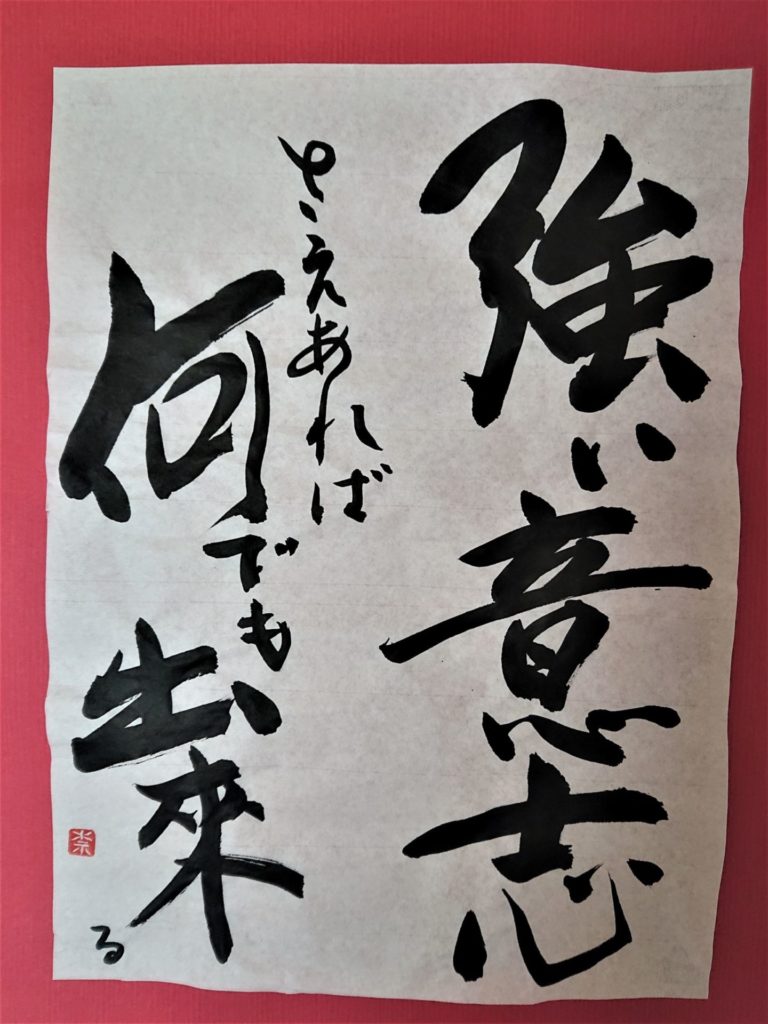 強い意志
さえあれば
何でも出来る